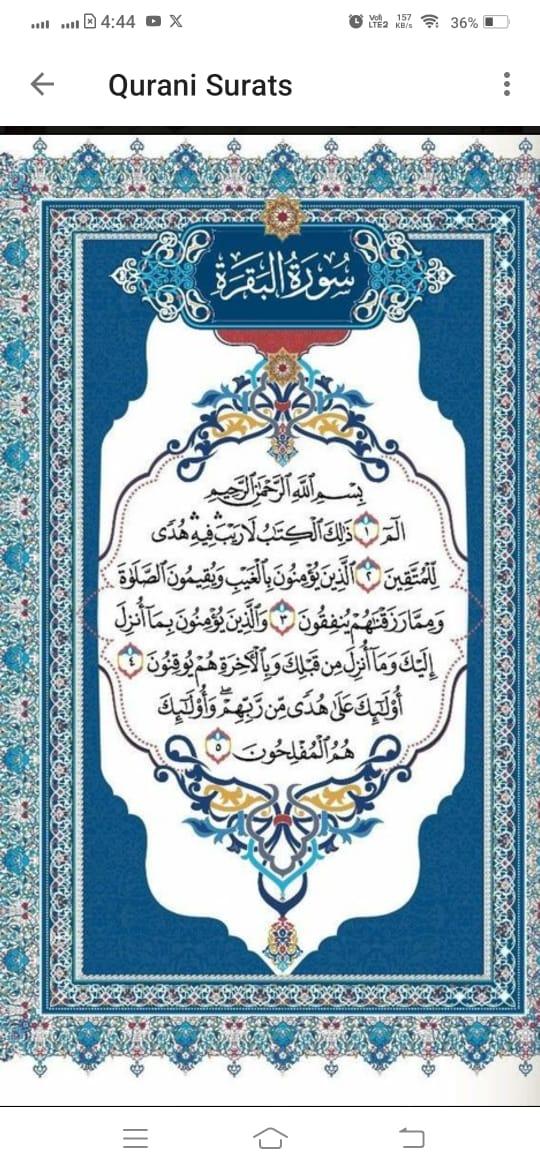 4:44
Voll LTE2
157 KB/s
36%
Qurani Surats
سُورَةُ الْبَقَرَةِ
بِسْمِ اللَّهِ الرَّحْمَٰنِ الرَّحِيمِ
الٓمٓ ١ ذَٰلِكَ الْكِتَٰبُ لَا رَيْبَ ۛ فِيهِ ۛ هُدًى
لِّلْمُتَّقِينَ ٢ الَّذِينَ يُؤْمِنُونَ بِالْغَيْبِ وَيُقِيمُونَ الصَّلَوٰةَ
وَمِمَّا رَزَقْنَٰهُمْ يُنفِقُونَ ٣ وَالَّذِينَ يُؤْمِنُونَ بِمَا أُنزِلَ
إِلَيْكَ وَمَا أُنزِلَ مِن قَبْلِكَ وَبِالْآخِرَةِ هُمْ يُوقِنُونَ ٤
أُو۟لَٰٓئِكَ عَلَىٰ هُدًى مِّن رَّبِّهِمْ ۖ وَأُو۟لَٰٓئِكَ
هُمُ الْمُفْلِحُونَ ٥